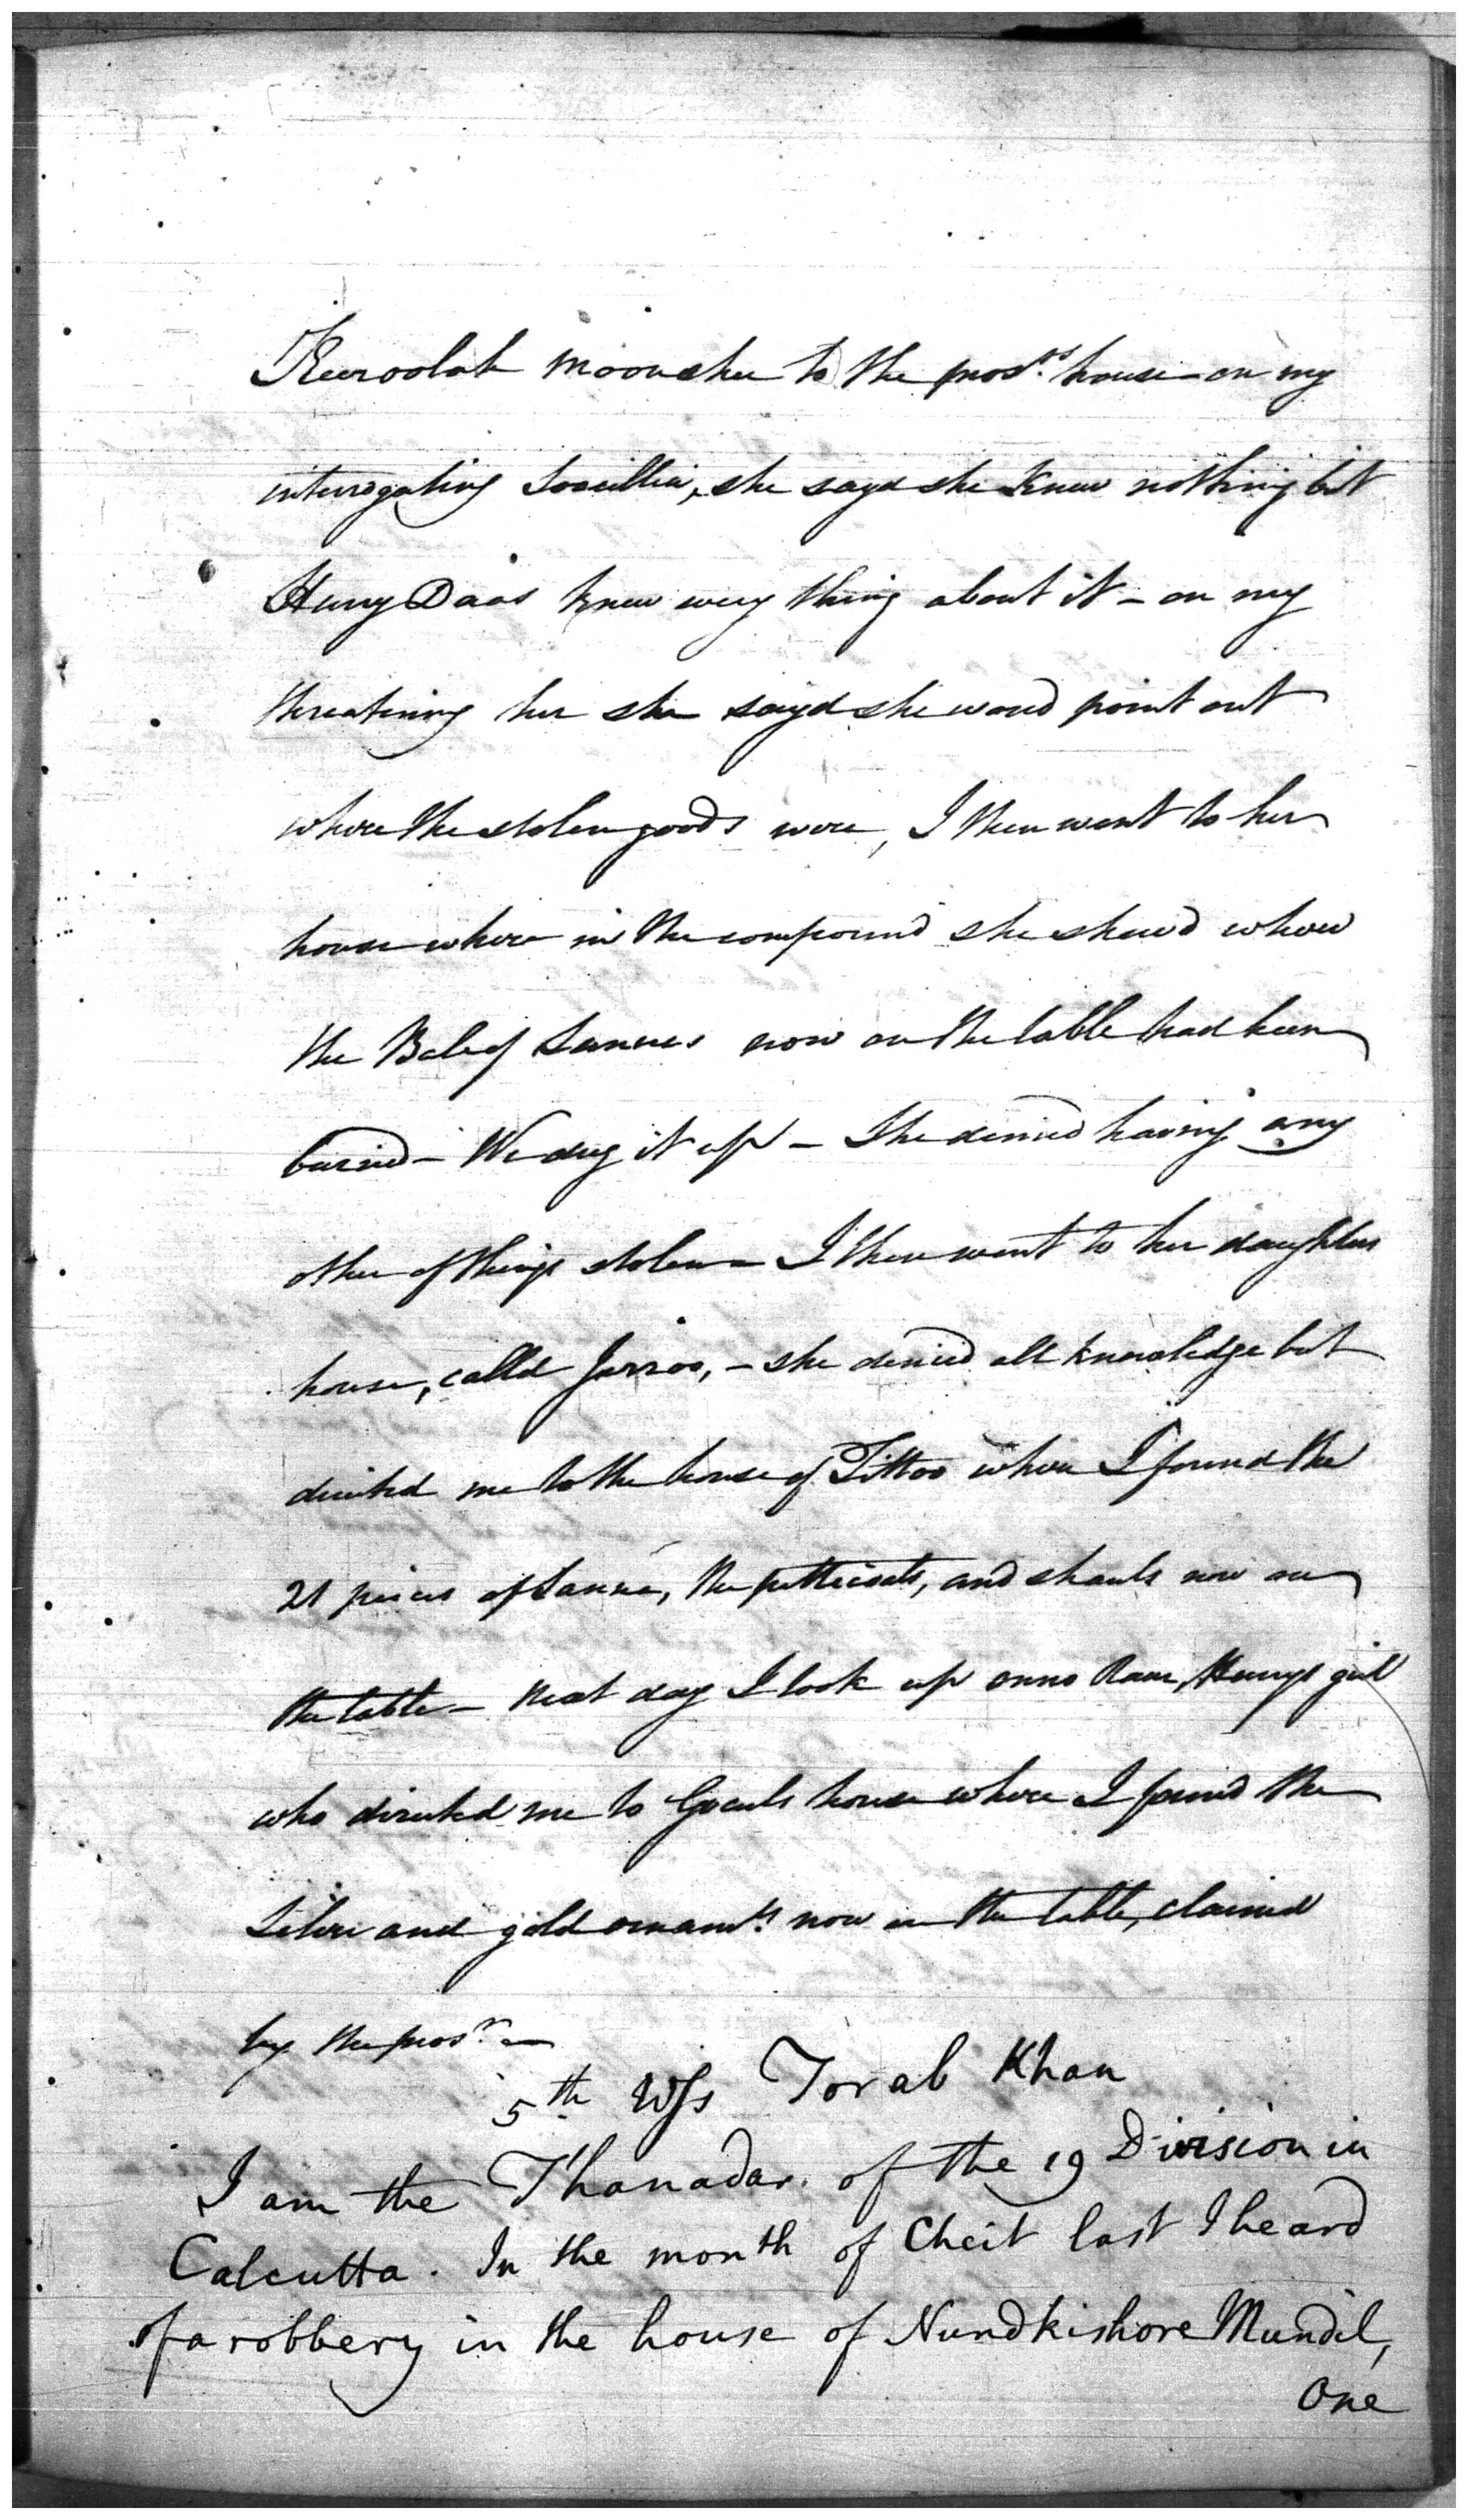 moonshee to the pros.rs house - on my
interrogating she sayd she knew nothing but
Hurry Daas knew every thing about it - on my
threatening her she sayd she woud point out
where the stolen goods were, I then went to her
house where in the compound she shew'd where
the Bale of Sannas now on the table had been
buried - We dug it up - She denied having any
other of things stolen - I then went to her daughters
house, calld Jurroo, - she denied all knowledge but
directed me to the house of Tittoo where I found the
21 pieces of Sanna, the petticoats, and shauls now on
the table - Next day I took up Hurrys girl
who directed me to Goculs house where I found the
Silver and gold ornamts. now on the table, claimed
by the pros.r -
5th Wss Torab Khan
I am the Thanadar. of the 19 Division in
Calcutta. In the month of Cheit last I heard
of a robbery in the house of Nundkishore Mundil,
One